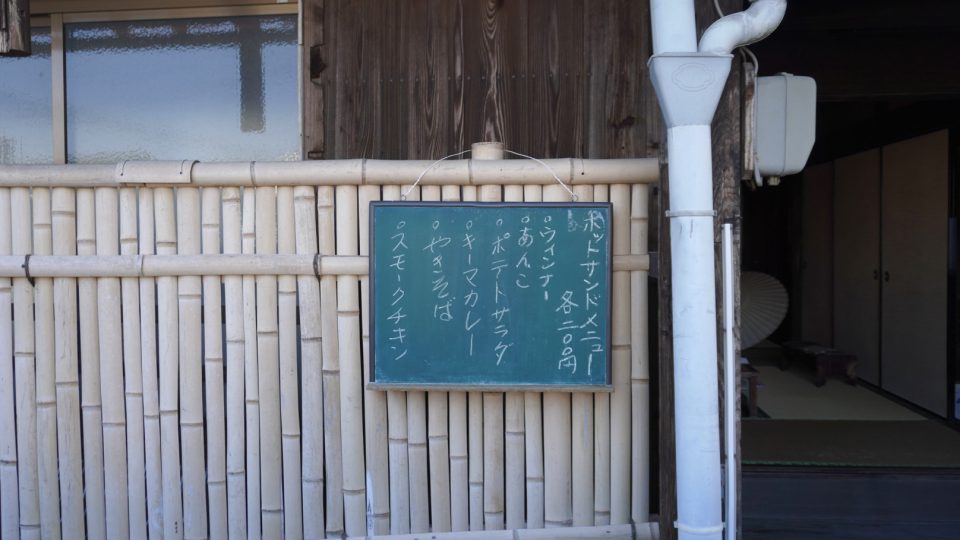 ホットサンドメニュー
各二〇〇円
○ウィンナー
○あんこ
○ポテトサラダ
○キーマカレー
○やきそば
○スモークチキン